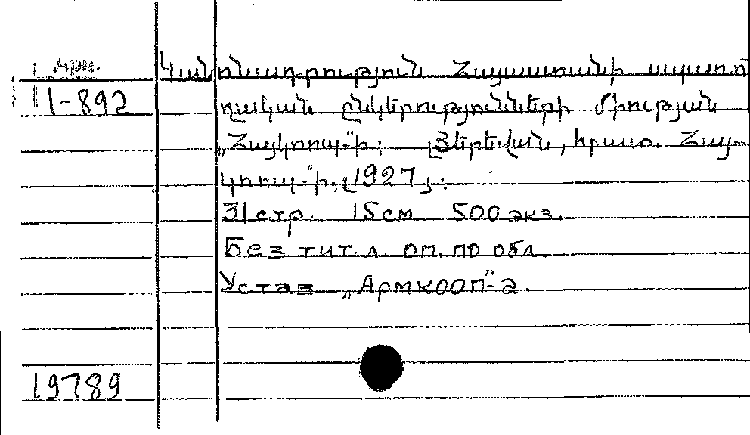 Կանոնադրություն Հայաստանի սպառո
11-892 ղական ընկերությունների միության
„Հայկոոպ“-ի: Յերեվան, հրատ. Հայ-
կոոպ“-ի. [1927]:
31 стр. 15 см 500 экз.
Без тит. л. оп. по обл.
Устав „Армкооп“-а.
19789